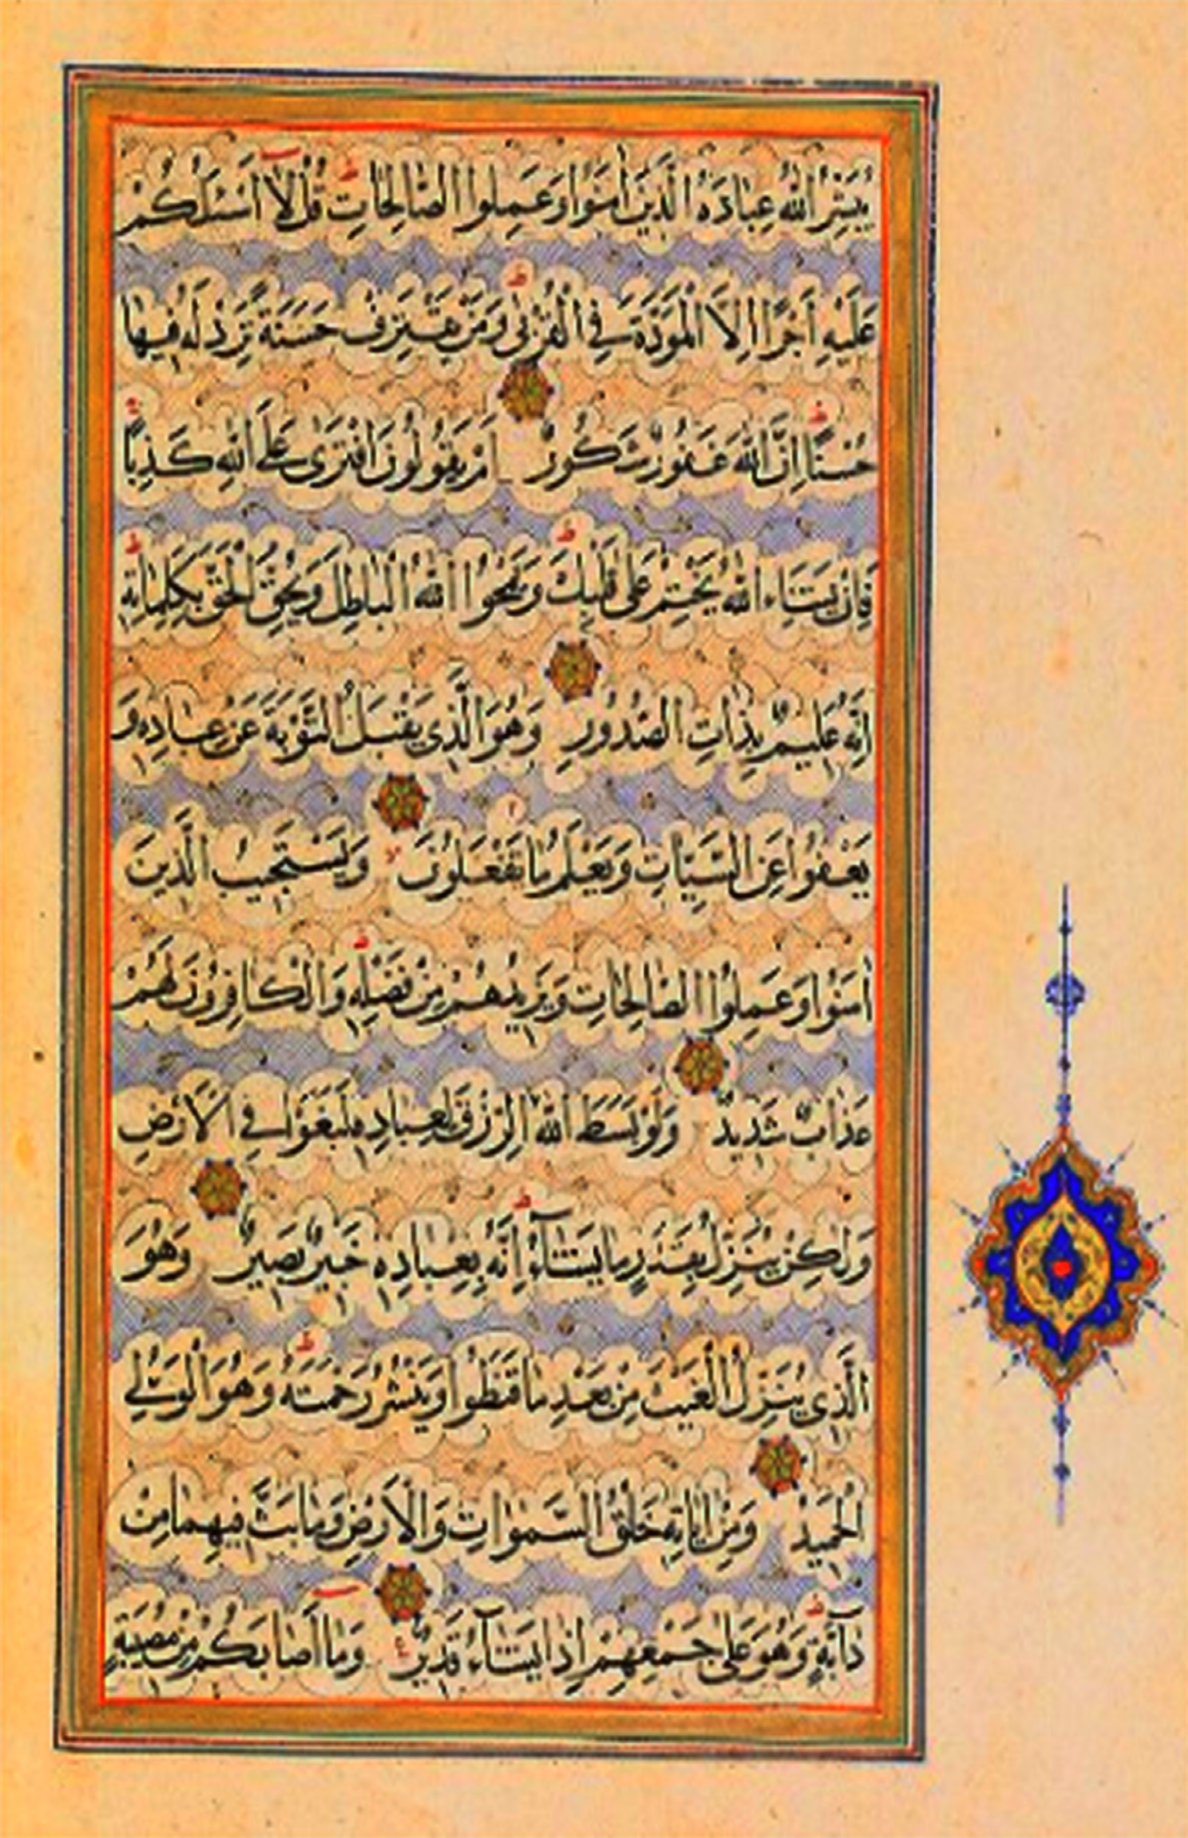 يُبَشِّرُ اللّٰهُ عِبَادَهُ الَّذِينَ اٰمَنُوا وَعَمِلُوا الصَّالِحَاتِ ط قُلْ لَا اَسْئَلُكُمْ
عَلَيْهِ اَجْرًا اِلَّا الْمَوَدَّةَ فِي الْقُرْبٰى ط وَمَنْ يَقْتَرِفْ حَسَنَةً نَزِدْ لَهُ فِيهَا
حُسْنًا ط اِنَّ اللّٰهَ غَفُورٌ شَكُورٌ اَمْ يَقُولُونَ افْتَرٰى عَلَى اللّٰهِ كَذِبًا
فَاِنْ يَشَاءِ اللّٰهُ يَخْتِمْ عَلٰى قَلْبِكَ ط وَيَمْحُوا اللّٰهُ الْبَاطِلَ وَيُحِقُّ الْحَقَّ بِكَلِمَاتِهِ ط
اِنَّهُ عَلِيمٌ بِذَاتِ الصُّدُورِ وَهُوَ الَّذِي يَقْبَلُ التَّوْبَةَ عَنْ عِبَادِهِ وَ
يَعْفُوا عَنِ السَّيِّاٰتِ وَيَعْلَمُ مَا تَفْعَلُونَ لا وَيَسْتَجِيبُ الَّذِينَ
اٰمَنُوا وَعَمِلُوا الصَّالِحَاتِ وَيَزِيدُهُمْ مِنْ فَضْلِهِ ط وَالْكَافِرُونَ لَهُمْ
عَذَابٌ شَدِيدٌ وَلَوْ بَسَطَ اللّٰهُ الرِّزْقَ لِعِبَادِهِ لَبَغَوْا فِي الْاَرْضِ
وَلٰكِنْ يُنَزِّلُ بِقَدَرٍ مَا يَشَاءُ ط اِنَّهُ بِعِبَادِهِ خَبِيرٌ بَصِيرٌ وَهُوَ
الَّذِي يُنَزِّلُ الْغَيْثَ مِنْ بَعْدِ مَا قَنَطُوا وَيَنْشُرُ رَحْمَتَهُ ط وَهُوَ الْوَلِيُّ
الْحَمِيدُ وَمِنْ اٰيَاتِهِ خَلْقُ السَّمٰوَاتِ وَالْاَرْضِ وَمَا بَثَّ فِيهِمَا مِنْ
دَآبَّةٍ ط وَهُوَ عَلٰى جَمْعِهِمْ اِذَا يَشَآءُ قَدِيرٌ ع وَمَا اَصَابَكُمْ مِنْ مُصِيبَةٍ